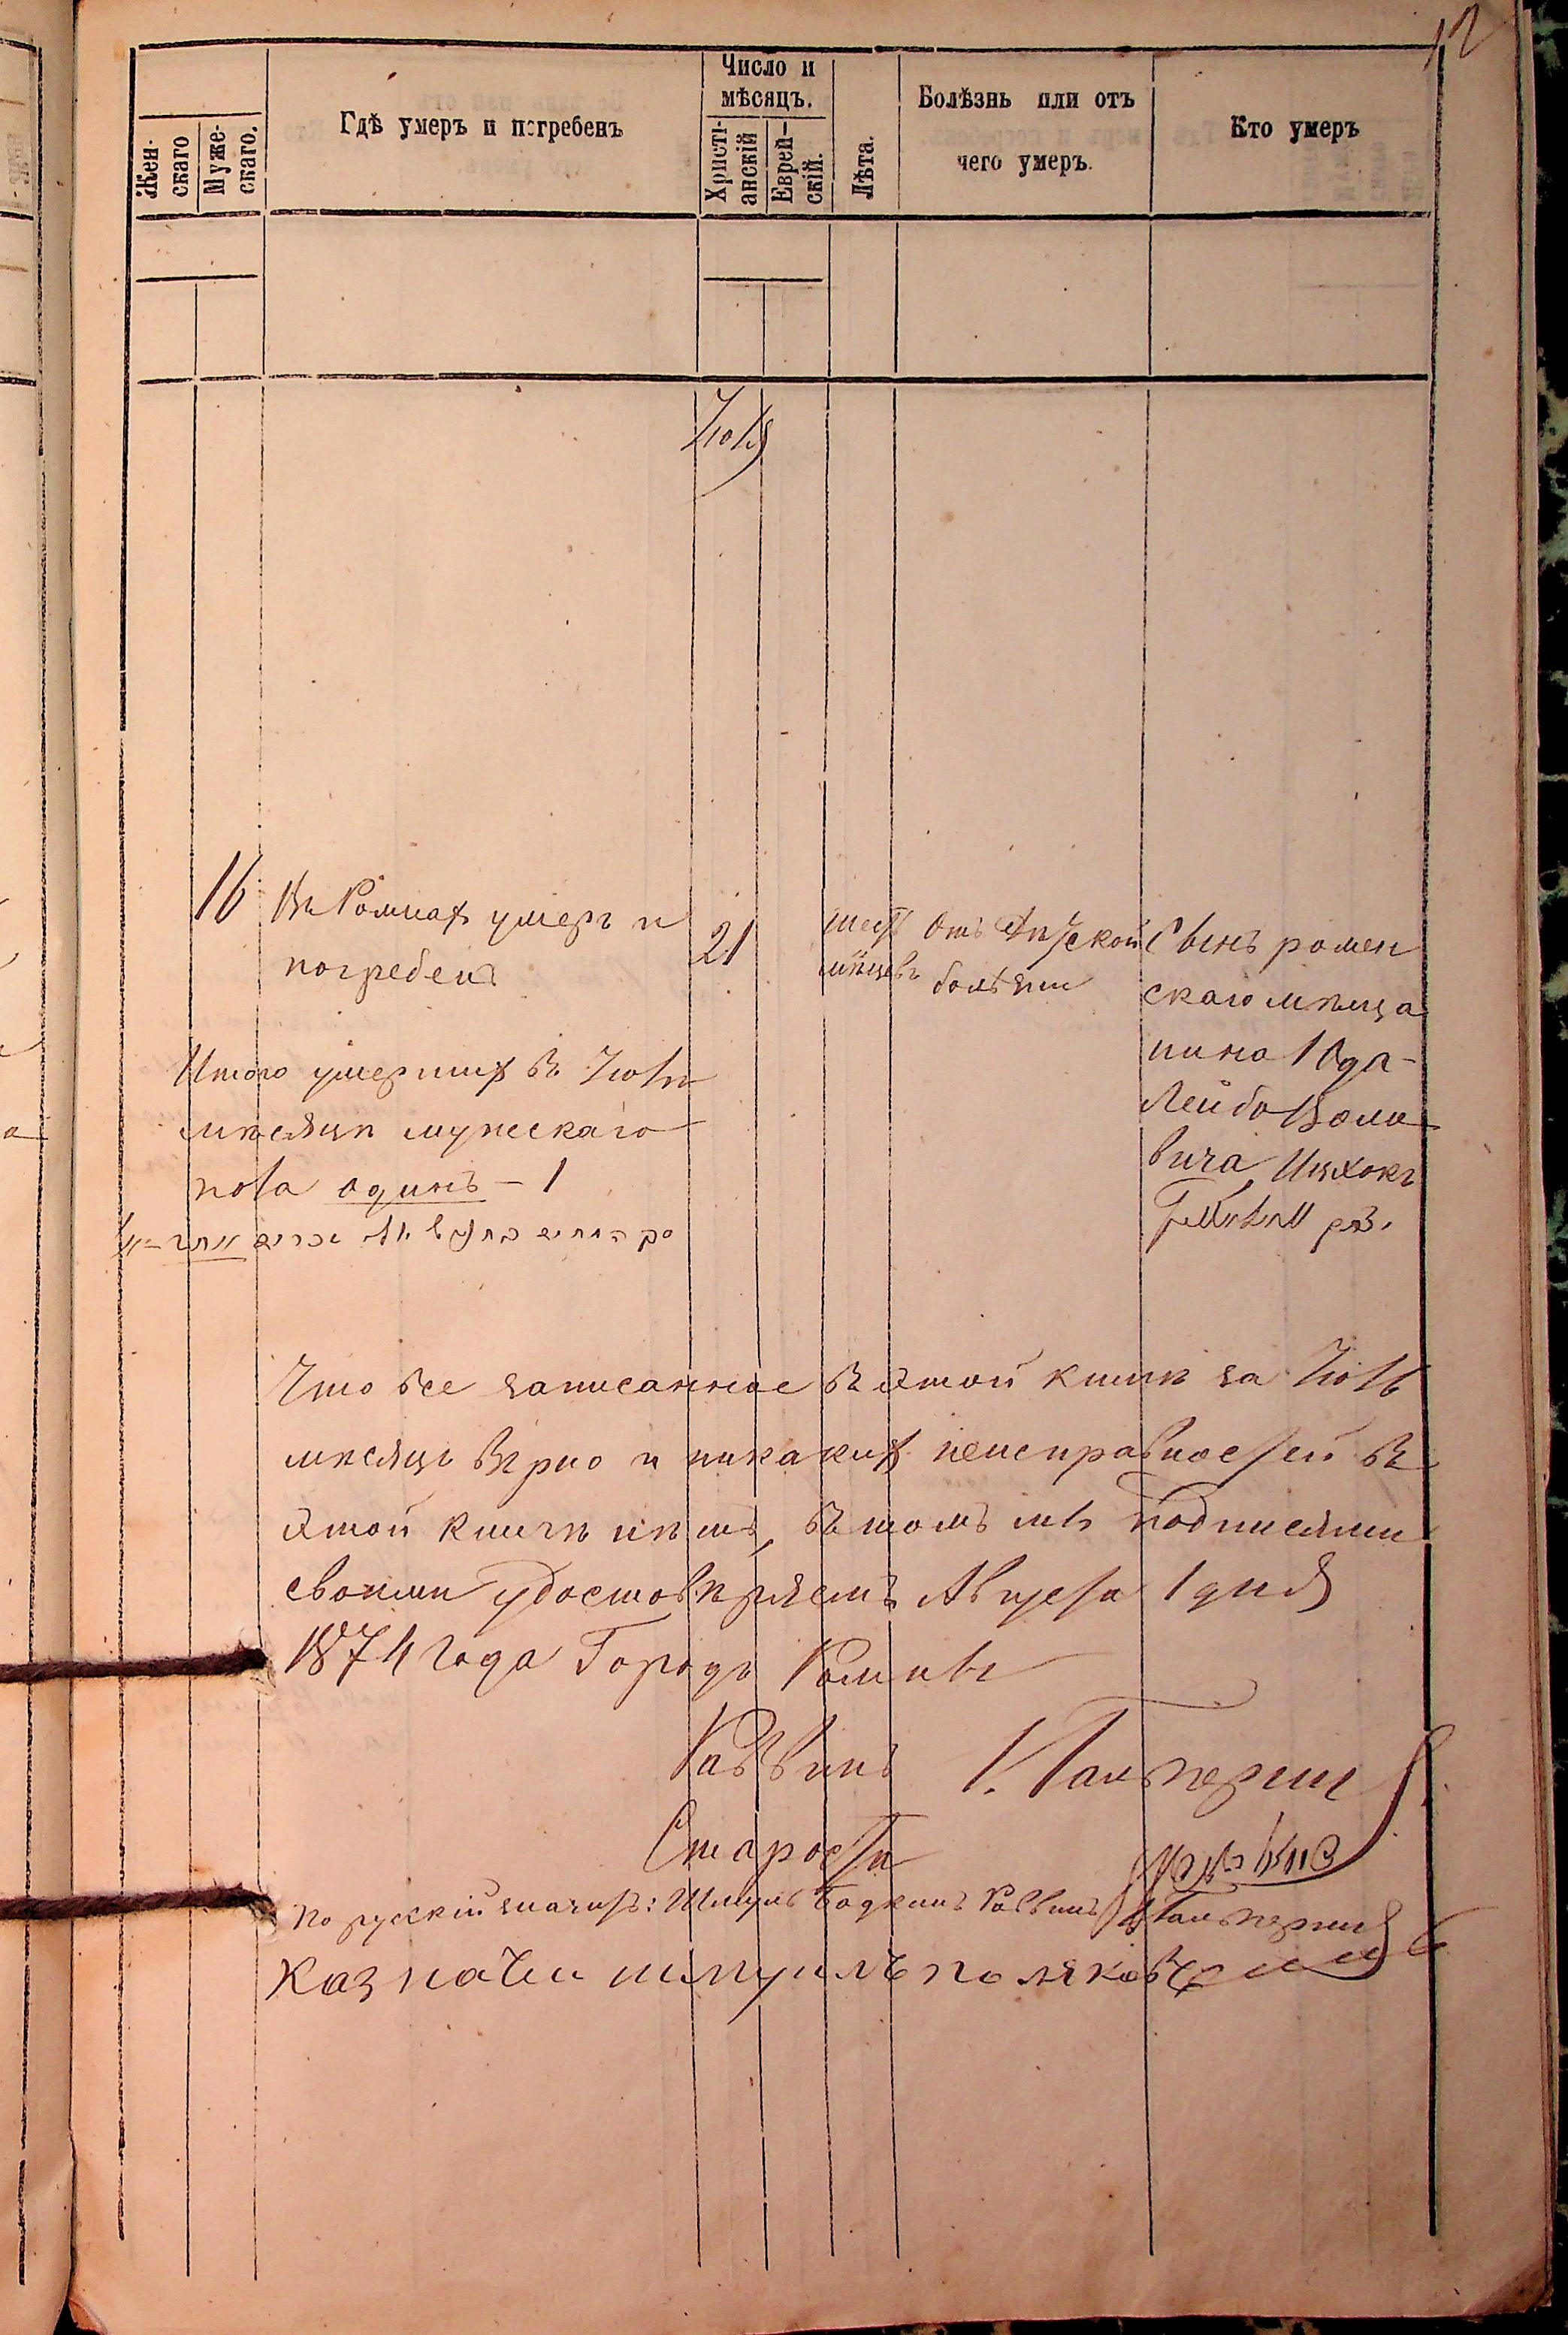 12
Жен-
скаго
Муже-
скаго.
Гдѣ умеръ и погребенъ
Число и
мѣсяцъ.
Христі-
анскій
Еврей-
скій.
Лѣта.
Болѣзнь или отъ
чего умеръ.
Кто умеръ
Іюля
16
Въ Ромнах умеръ и
погребенъ
21
шест
мѣсяцевъ
Отъ дѣтской
болѣзни
Сынъ ромен
скаго мѣща
нина Юда-
Лейба
вича Ицхокъ
Итого умерших въ Іюлѣ
мѣсяцѣ мужескаго
пола одинъ – 1
Что все записанное въ этой книгѣ за Іюль
мѣсяцъ вѣрно и никаких неисправностей въ
этой книгѣ нѣтъ, въ томъ мы подписями
своими удостовѣряемъ Августа 1 дня
1874 года Городъ Ромны
Раввинъ Гальперин
Староста
По русскій значитъ: Шмуль Бодкинъ Раввинъ Гальперинъ
Казначеи шмуилъ поляковъ